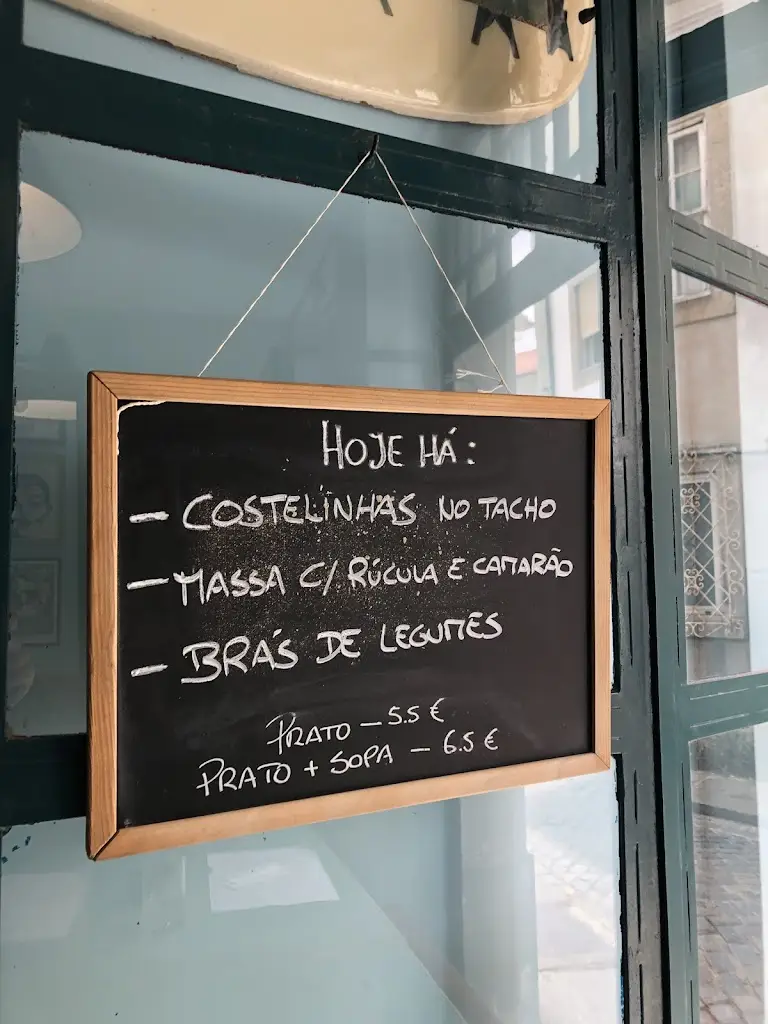 HOJE HÁ:
— COSTELINHAS NO TACHO
— MASSA C/ RÚCULA E CAMARÃO
— BRÁS DE LEGUMES
PRATO — 5.5 €
PRATO + SOPA — 6.5 €